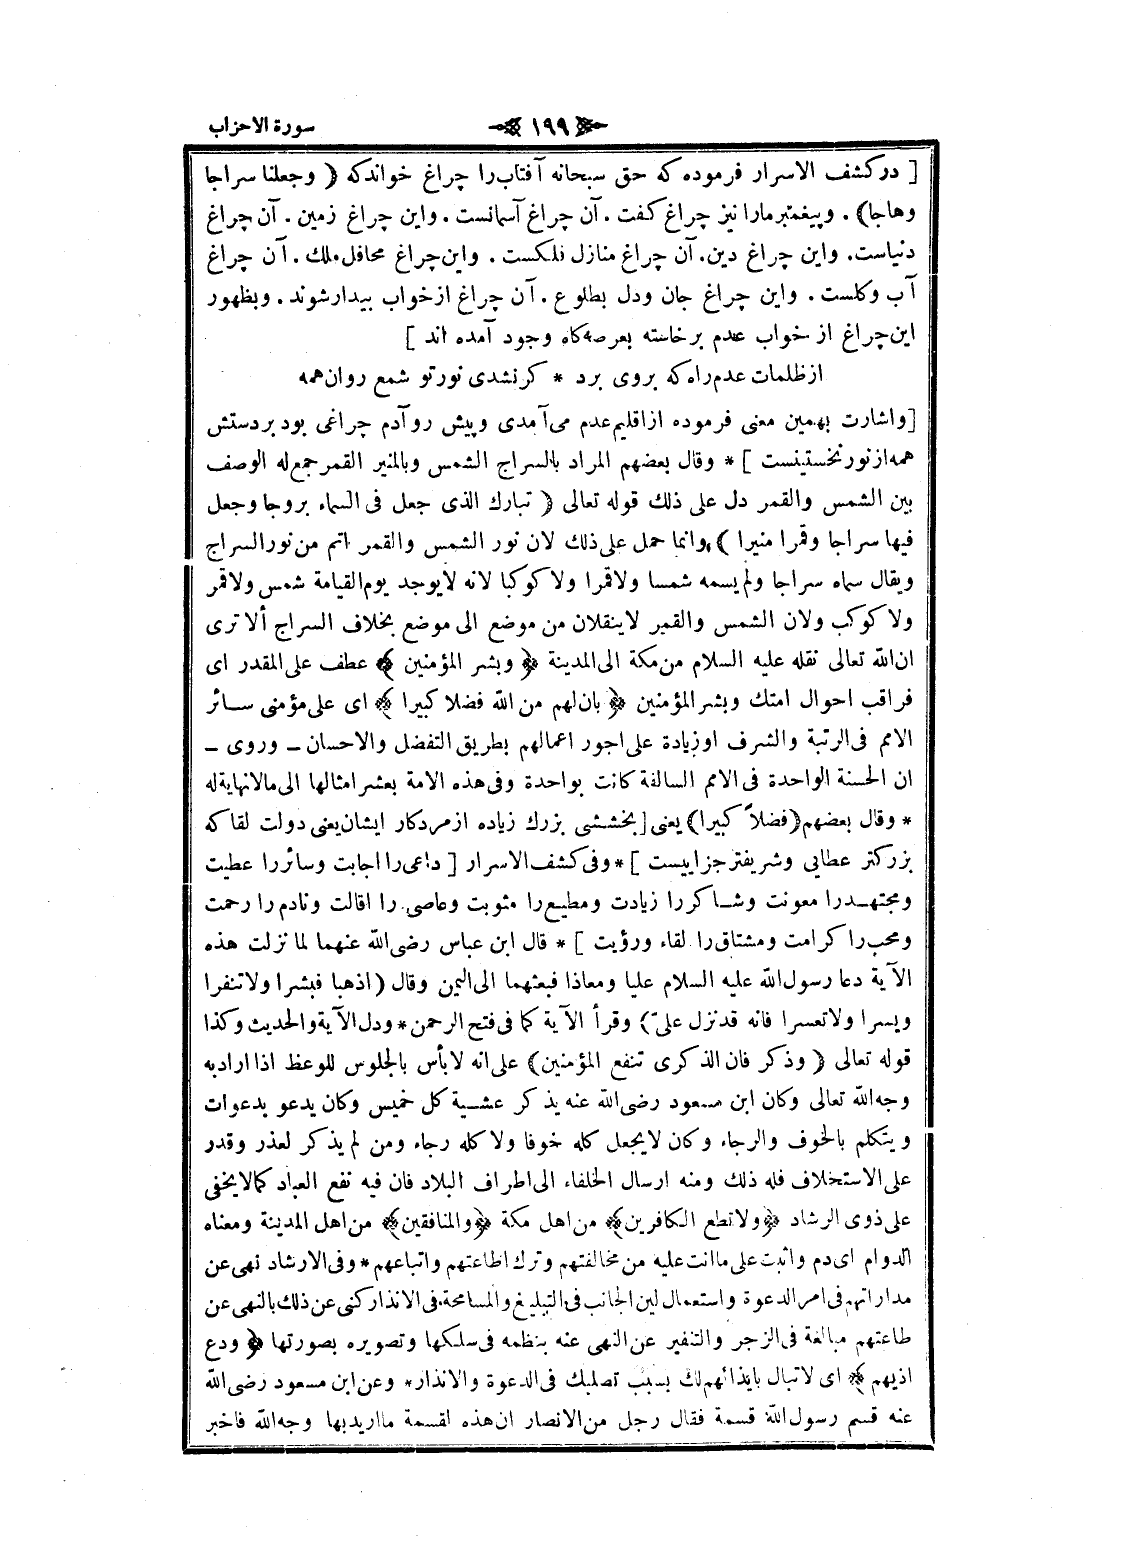 سورة الاحزاب ١٩٩
[ در كشف الاسرار فرموده كه حق سبحانه آفتاب را چراغ خواند كه ( وجعلنا سراجا
وهاجا) . وپيغمبر مارا نيز چراغ كفت . آن چراغ آسمانست . واين چراغ زمين . آن چراغ
دنياست. واين چراغ دين. آن چراغ منازل فلكست . واين چراغ محافل ملك . آن چراغ
آب وكلست . واين چراغ جان ودل بطلوع . آن چراغ از خواب بيدار شوند . وبظهور
اين چراغ از خواب عدم برخاسته بعرصه كاه وجود آمده اند ]
از ظلمات عدم راه كه بروى برد * كرنشدى نور تو شمع روان همه
[واشارت بهمين معنى فرموده از اقليم عدم مى آمدى وپيش رو آدم چراغى بود بر دستش
همه از نور نخستينست ] * وقال بعضهم المراد بالسراج الشمس وبالمنير القمر جمع له الوصف
بين الشمس والقمر دل على ذلك قوله تعالى ( تبارك الذى جعل فى السماء بروجا وجعل
فيها سراجا وقمرا منيرا ) وانما حمل على ذلك لان نور الشمس والقمر اتم من نور السراج
ويقال سماه سراجا ولم يسمه شمسا ولا قمرا ولا كوكبا لانه لا يوجد يوم القيامة شمس ولا قمر
ولا كوكب ولان الشمس والقمر لا ينقلان من موضع الى موضع بخلاف السراج ألا ترى
ان الله تعالى نقله عليه السلام من مكة الى المدينة ﴿ وبشر المؤمنين ﴾ عطف على المقدر اى
فراقب احوال امتك وبشر المؤمنين ﴿ بان لهم من الله فضلا كبيرا ﴾ اى على مؤمنى سائر
الامم فى الرتبة والشرف او زيادة على اجور اعمالهم بطريق التفضل والاحسان ـ وروى ـ
ان الحسنة الواحدة فى الامم السالفة كانت بواحدة وفى هذه الامة بعشر امثالها الى مالانهاية له
* وقال بعضهم (فضلاً كبيرا) يعنى [بخششى بزرك زياده از مردكار ايشان يعنى دولت لقا كه
بزركتر عطايى وشريفتر جزاييست ] * وفى كشف الاسرار [ داعى را اجابت وسائررا عطيت
ومجتهدرا معونت وشاكررا زيادت ومطيع را مثوبت وعاصى را اقالت ونادم را رحمت
ومحب را كرامت ومشتاق را لقاء ورؤيت ] * قال ابن عباس رضى الله عنهما لما نزلت هذه
الآية دعا رسول الله عليه السلام عليا ومعاذا فبعثهما الى اليمن وقال (اذهبا فبشرا ولا تنفرا
ويسرا ولا تعسرا فانه قد نزل علىّ) وقرأ الآية كما فى فتح الرحمن * ودل الآية والحديث وكذا
قوله تعالى ( وذكر فان الذكرى تنفع المؤمنين) على انه لا بأس بالجلوس للوعظ اذا اراد به
وجه الله تعالى وكان ابن مسعود رضى الله عنه يذكر عشية كل خميس وكان يدعو بدعوات
ويتكلم بالخوف والرجاء وكان لا يجعل كله خوفا ولا كله رجاء ومن لم يذكر لعذر وقدر
على الاستخلاف فله ذلك ومنه ارسال الخلفاء الى اطراف البلاد فان فيه نفع العباد كما لا يخفى
على ذوى الرشاد ﴿ولا تطع الكافرين﴾ من اهل مكة ﴿والمنافقين﴾ من اهل المدينة ومعناه
الدوام اى دم واثبت على ما انت عليه من مخالفتهم وترك اطاعتهم واتباعهم * وفى الارشاد نهى عن
مداراتهم فى امر الدعوة واستعمال لين الجانب فى التبليغ والمسامحة فى الانذار كنى عن ذلك بالنهى عن
طاعتهم مبالغة فى الزجر والتنفير عن النهى عنه بنظمه فى سلكها وتصويره بصورتها ﴿ ودع
اذيهم ﴾ اى لا تبال بايذائهم لك بسبب تصلبك فى الدعوة والانذار * وعن ابن مسعود رضى الله
عنه قسم رسول الله قسمة فقال رجل من الانصار ان هذه لقسمة ما اريد بها وجه الله فاخبر